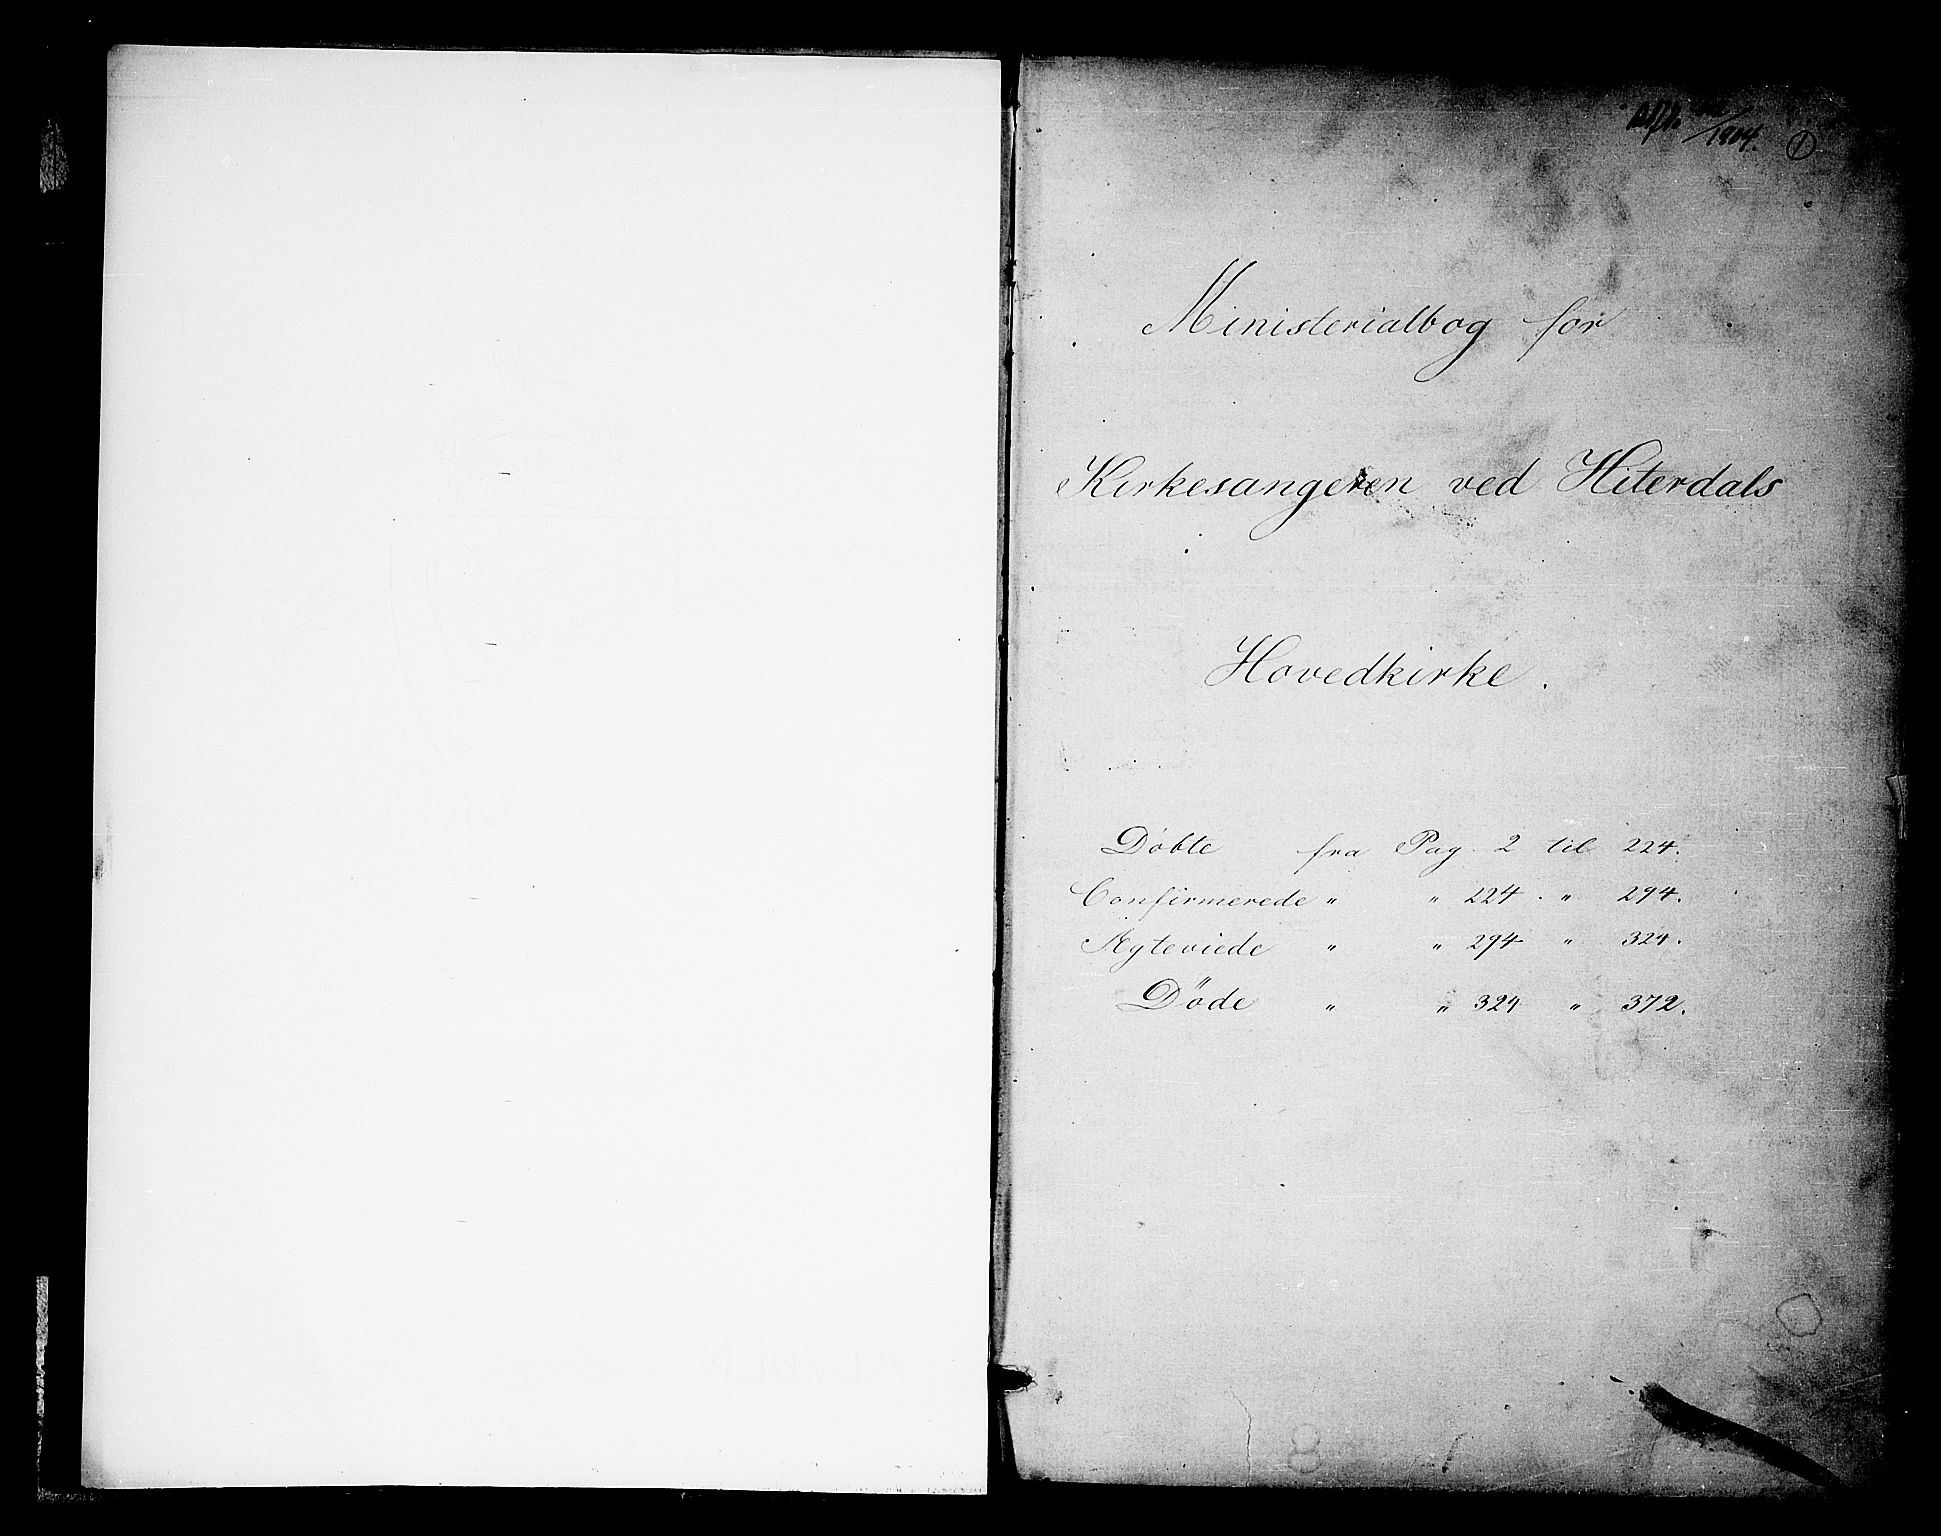 1904. 1
Ministerialbog for
Kirkesangeren ved Hiterdals
Hovedkirke.
Döbte fra Pag. 2 til 224.
Confirmerede " " 224. " 294.
Ægteviede " " 294 " 324.
Döde " " 324 " 372.